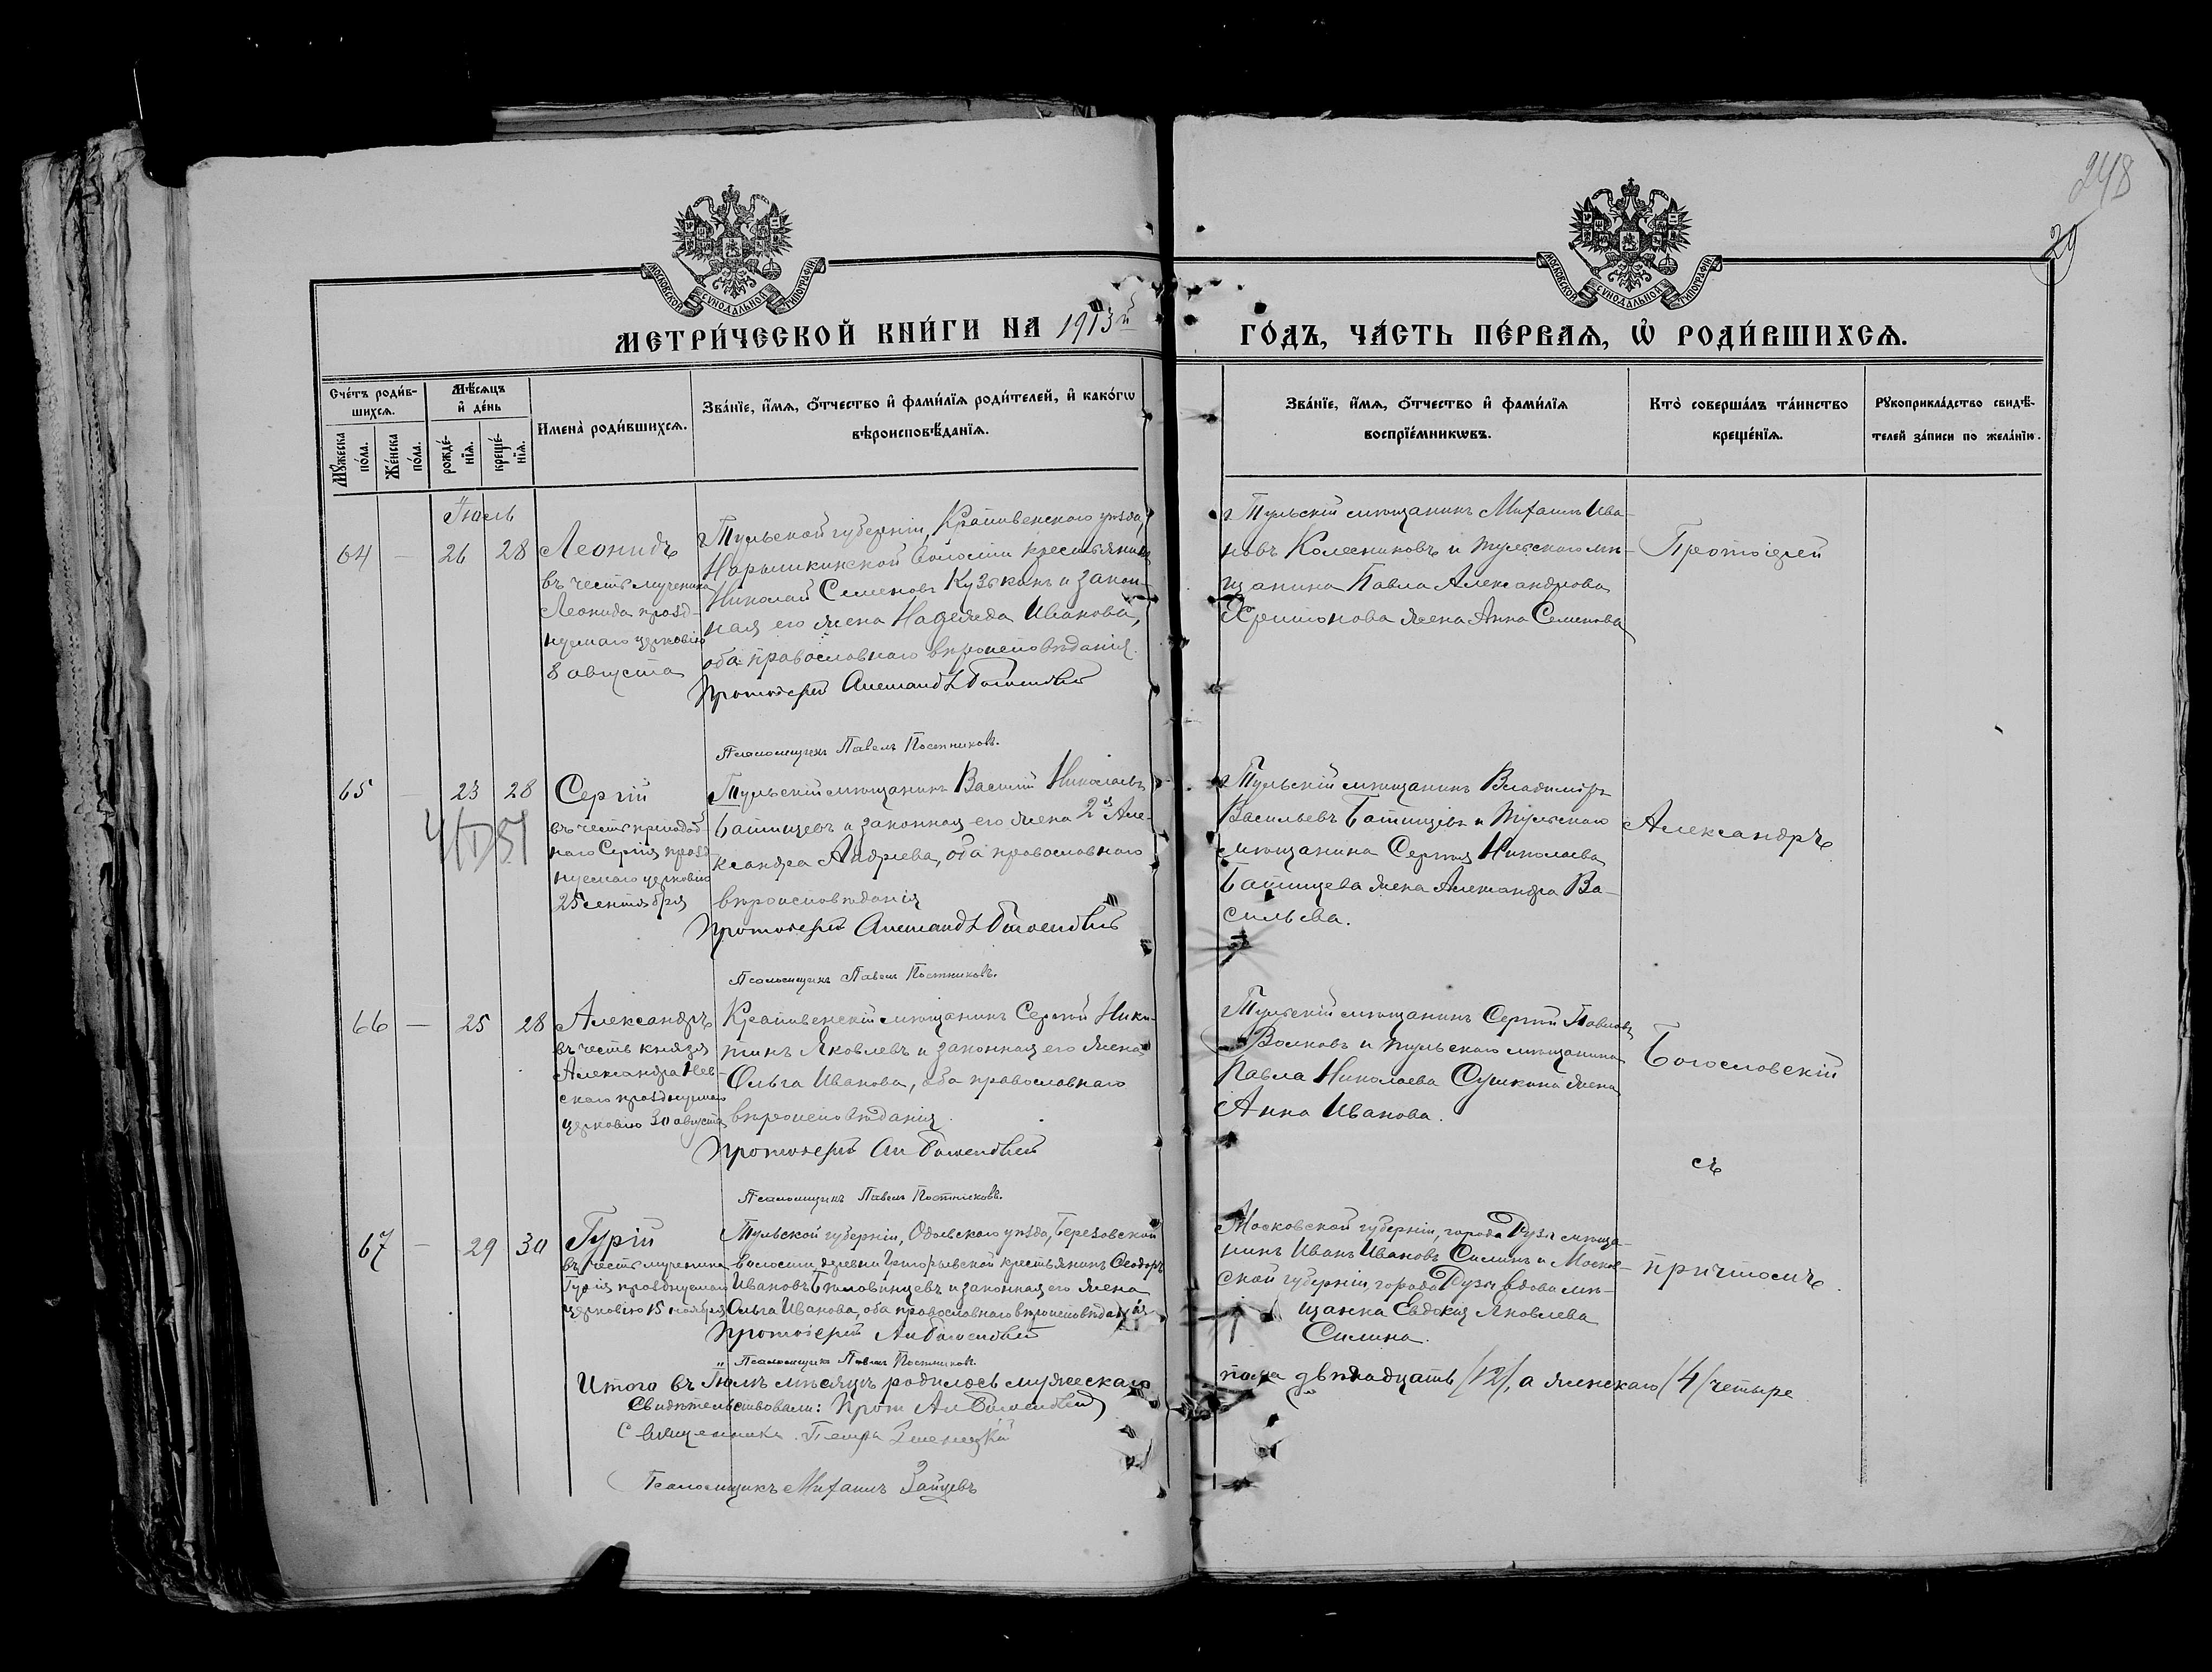 248
29
МОСКОВСКОЙ СѴНОДАЛЬНОЙ ТИПОГРАФІИ
МОСКОВСКОЙ СѴНОДАЛЬНОЙ ТИПОГРАФІИ
МЕТРИ́ЧЕСКОЙ КНИ́ГИ НА 1913й ГО́ДЪ, ЧА́СТЬ ПЕ́РВАЯ, Ѡ҆ РОДИ́ВШИХСЯ.
Сче́тъ роди́в-
шихся.
Мꙋ́жеска по́ла.
Же́нска по́ла.
Мѣ́сяцъ
и҆ де́нь
рожде́-
нїя.
креще́-
нїя.
И҆мена̀ роди́вшихся.
Зва́нїе, и҆́мя, ѻ҆́тчество и҆ фами́лїя роди́телей, и҆ како́гѡ
вѣроисповѣ́данїя.
Зва́нїе, и҆́мя, ѻ҆́тчество и҆ фами́лїя
воспрїе́мникѡвъ.
Кто̀ соверша́лъ та́инство
креще́нїя.
Рꙋкоприкла́дство свидѣ́-
телей за́писи по жела́нїю.
Іюль
64 — 26 28
Леонидъ
въ честь мученика
Леонида празд-
нуемаго церковію
8 августа
Тульской губерніи, Крапивенскаго уѣзда,
Нарышкинской волости крестьянинъ
Николай Семеновъ Кузькинъ и закон-
ная его жена Надежда Иванова,
оба православнаго вѣроисповѣданія.
Протоіерей Александръ Богословскій
Псаломщикъ Павелъ Постниковъ.
Тульскій мѣщанинъ Михаилъ Ива-
новъ Колесниковъ и тульскаго мѣ-
щанина Павла Александрова
Аннa Семенова
Протоіерей
65 — 23 28
Сергій
въ честь преподоб-
наго Сергія празд-
нуемаго церковію
25 сентября
Тульскій мѣщанинъ Василій Николаевъ
Батищевъ и законная его жена 2я Але-
ксандра Андреева, оба православнаго
вѣроисповѣданія
Протоіерей Александръ Богословскій
Псаломщикъ Павелъ Постниковъ.
Тульскій мѣщанинъ Владиміръ
Васильевъ Батищевъ и тульскаго
мѣщанина Сергѣя Николаева
Батищева жена Александра Ва-
сильева.
Александръ
66 — 25 28
Александръ
въ честь князя
Александра Нев-
скаго празднуемаго
церковію 30 августа
Крапивенскій мѣщанинъ Сергѣй Ники-
тинъ Яковлевъ и законная его жена
Ольга Иванова, оба православнаго
вѣроисповѣданія.
Протоіерей Ал Богословскій
Псаломщикъ Павелъ Постниковъ.
Тульскій мѣщанинъ Сергѣй Павловъ
Волковъ и тульскаго мѣщанина
Павла Николаева Сушкина жена
Анна Иванова.
Богословскій
съ
67 — 29 30
Гурій
въ честь мученика
Гурія празднуемаго
церковію 15 ноября
Тульской губерніи, Одоевскаго уѣзда, Березовской
волости, деревни Григорьевской крестьянинъ Ѳеодоръ
Ивановъ и законная его жена
Ольга Иванова, оба православнаго вѣроисповѣданія
Протоіерей Ал Богословскій
Псаломщикъ Павелъ Постниковъ.
Московской губерніи, города Рузы мѣща-
нинъ Иванъ Ивановъ Силинъ и Москов-
ской губерніи, города Рузы вдова мѣ-
щанка Евдокія Яковлева
Силина.
причтомъ.
Итого въ Іюлѣ мѣсяцѣ родилось мужескаго пола двѣнадцать /12/, а женскаго /4/ четыре
Свидѣтельствовали: Прот Ал Богословскій
Священникъ Петръ
Псаломщикъ Михаилъ Зайцевъ